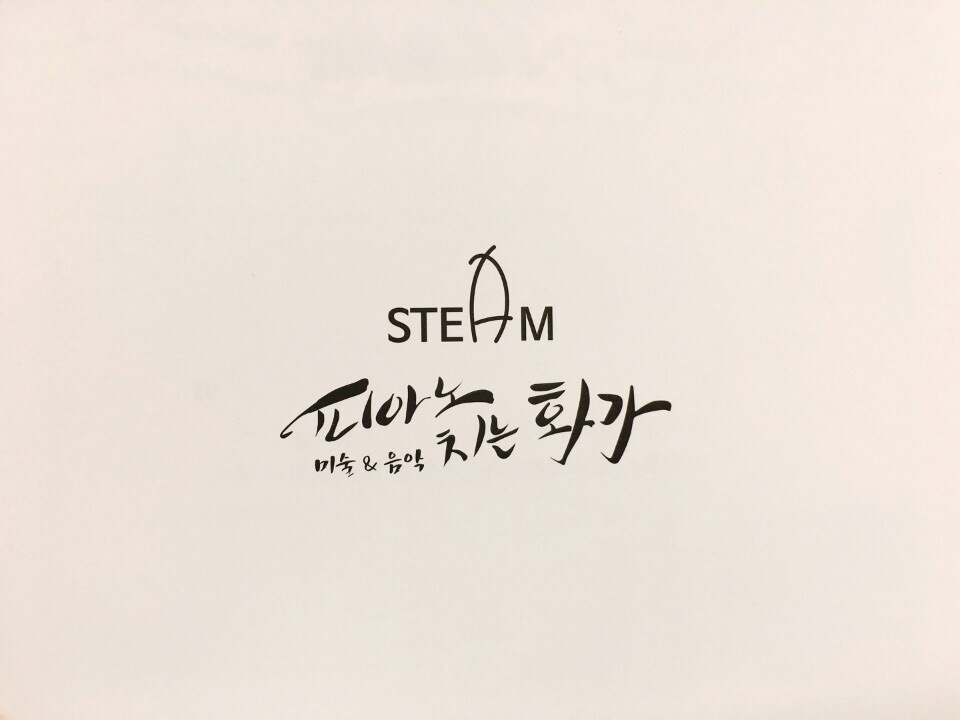 STEAM
피아노 치는 화가
미술 & 음악